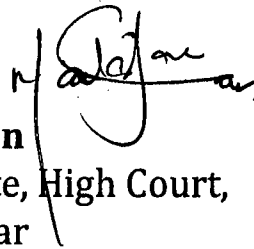 n
te, High Court,
ar